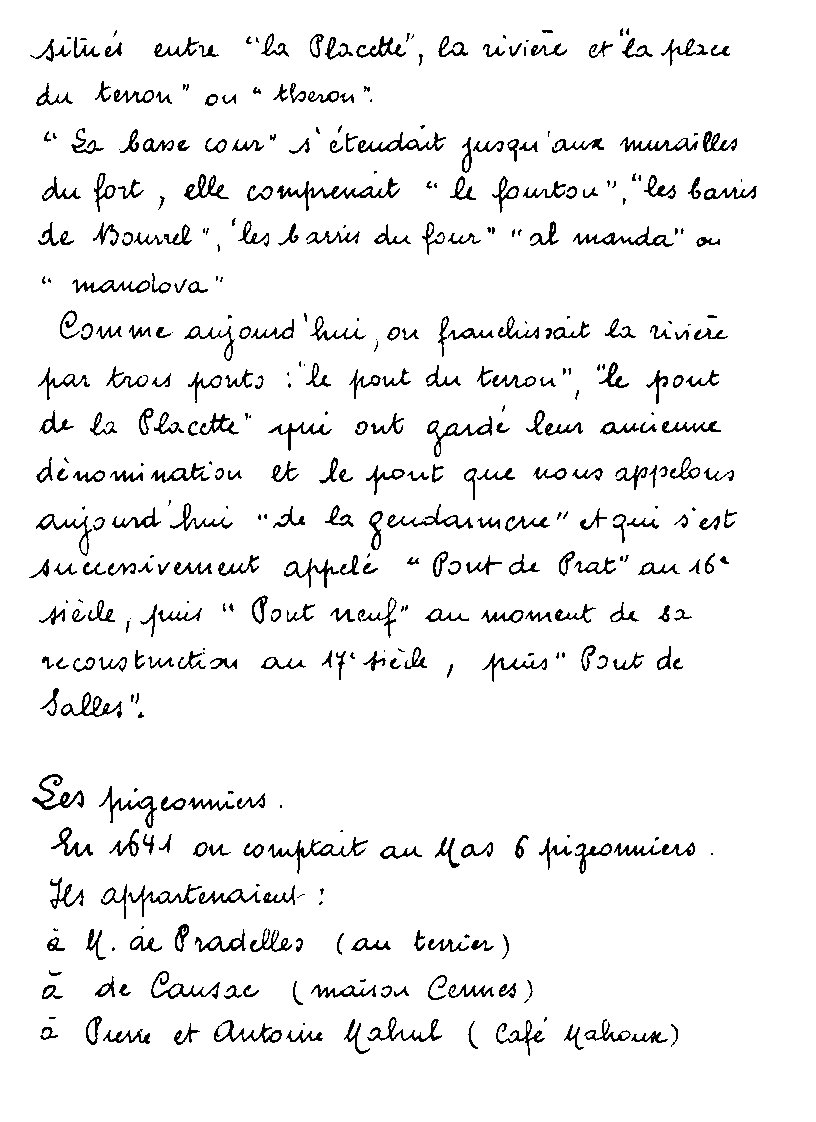 situés entre "la Placette", la rivière et "la place
du terrou" ou "theron".
"La basse cour" s'étendait jusqu'aux murailles
du fort, elle comprenait "le fourtou", "les barris
de Bourrel", "les barris du four" "al manda" ou
"mandova"
Comme aujourd'hui, on franchissait la rivière
par trois ponts : "le pont du terrou", "le pont
de la Placette" qui ont gardé leur ancienne
dénomination et le pont que nous appelons
aujourd'hui "de la gendarmerie" et qui s'est
successivement appelé "Pont de Prat" au 16e
siècle, puis "Pont neuf" au moment de sa
reconstruction au 17e siècle, puis "Pont de
Salles".
Les pigeonniers.
En 1641 on comptait au Mas 6 pigeonniers.
Ils appartenaient :
à M. de Pradelles (au terrier)
à de Caussac (maison Cennes)
à Pierre et Antoine Mahul (Café Mahoux)